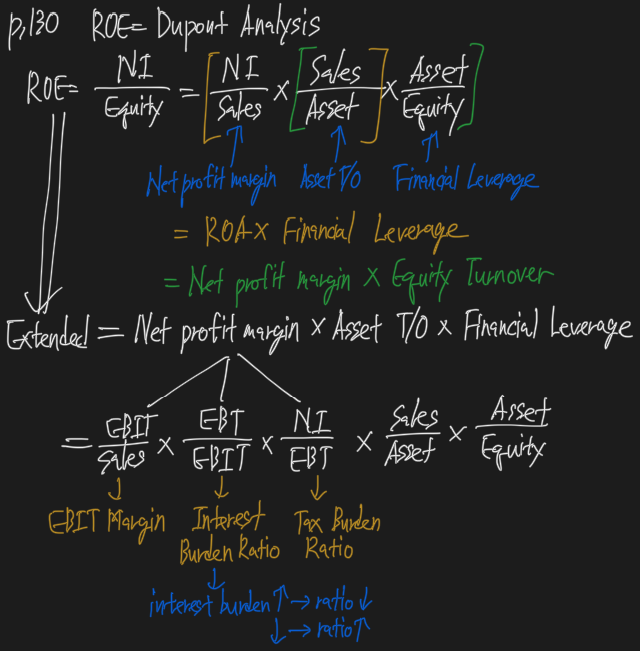 p.130 ROE= Dupont Analysis
ROE = NI/Equity = [NI/Sales × [Sales/Asset] × Asset/Equity]
Net profit margin Asset T/O Financial Leverage
= ROA × Financial Leverage
= Net profit margin × Equity Turnover
Extended = Net profit margin × Asset T/O × Financial Leverage
= EBIT/Sales × EBT/EBIT × NI/EBT × Sales/Asset × Asset/Equity
↓ ↓ ↓
EBIT Margin Interest Burden Ratio Tax Burden Ratio
↓
interest burden ↑ → ratio ↓
↓ → ratio ↑